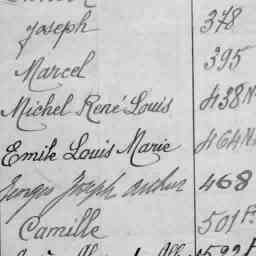 Joseph 378
Marcel 395
Michel René Louis 438
Emile Louis Marie 464
Joseph 468
Camille 501